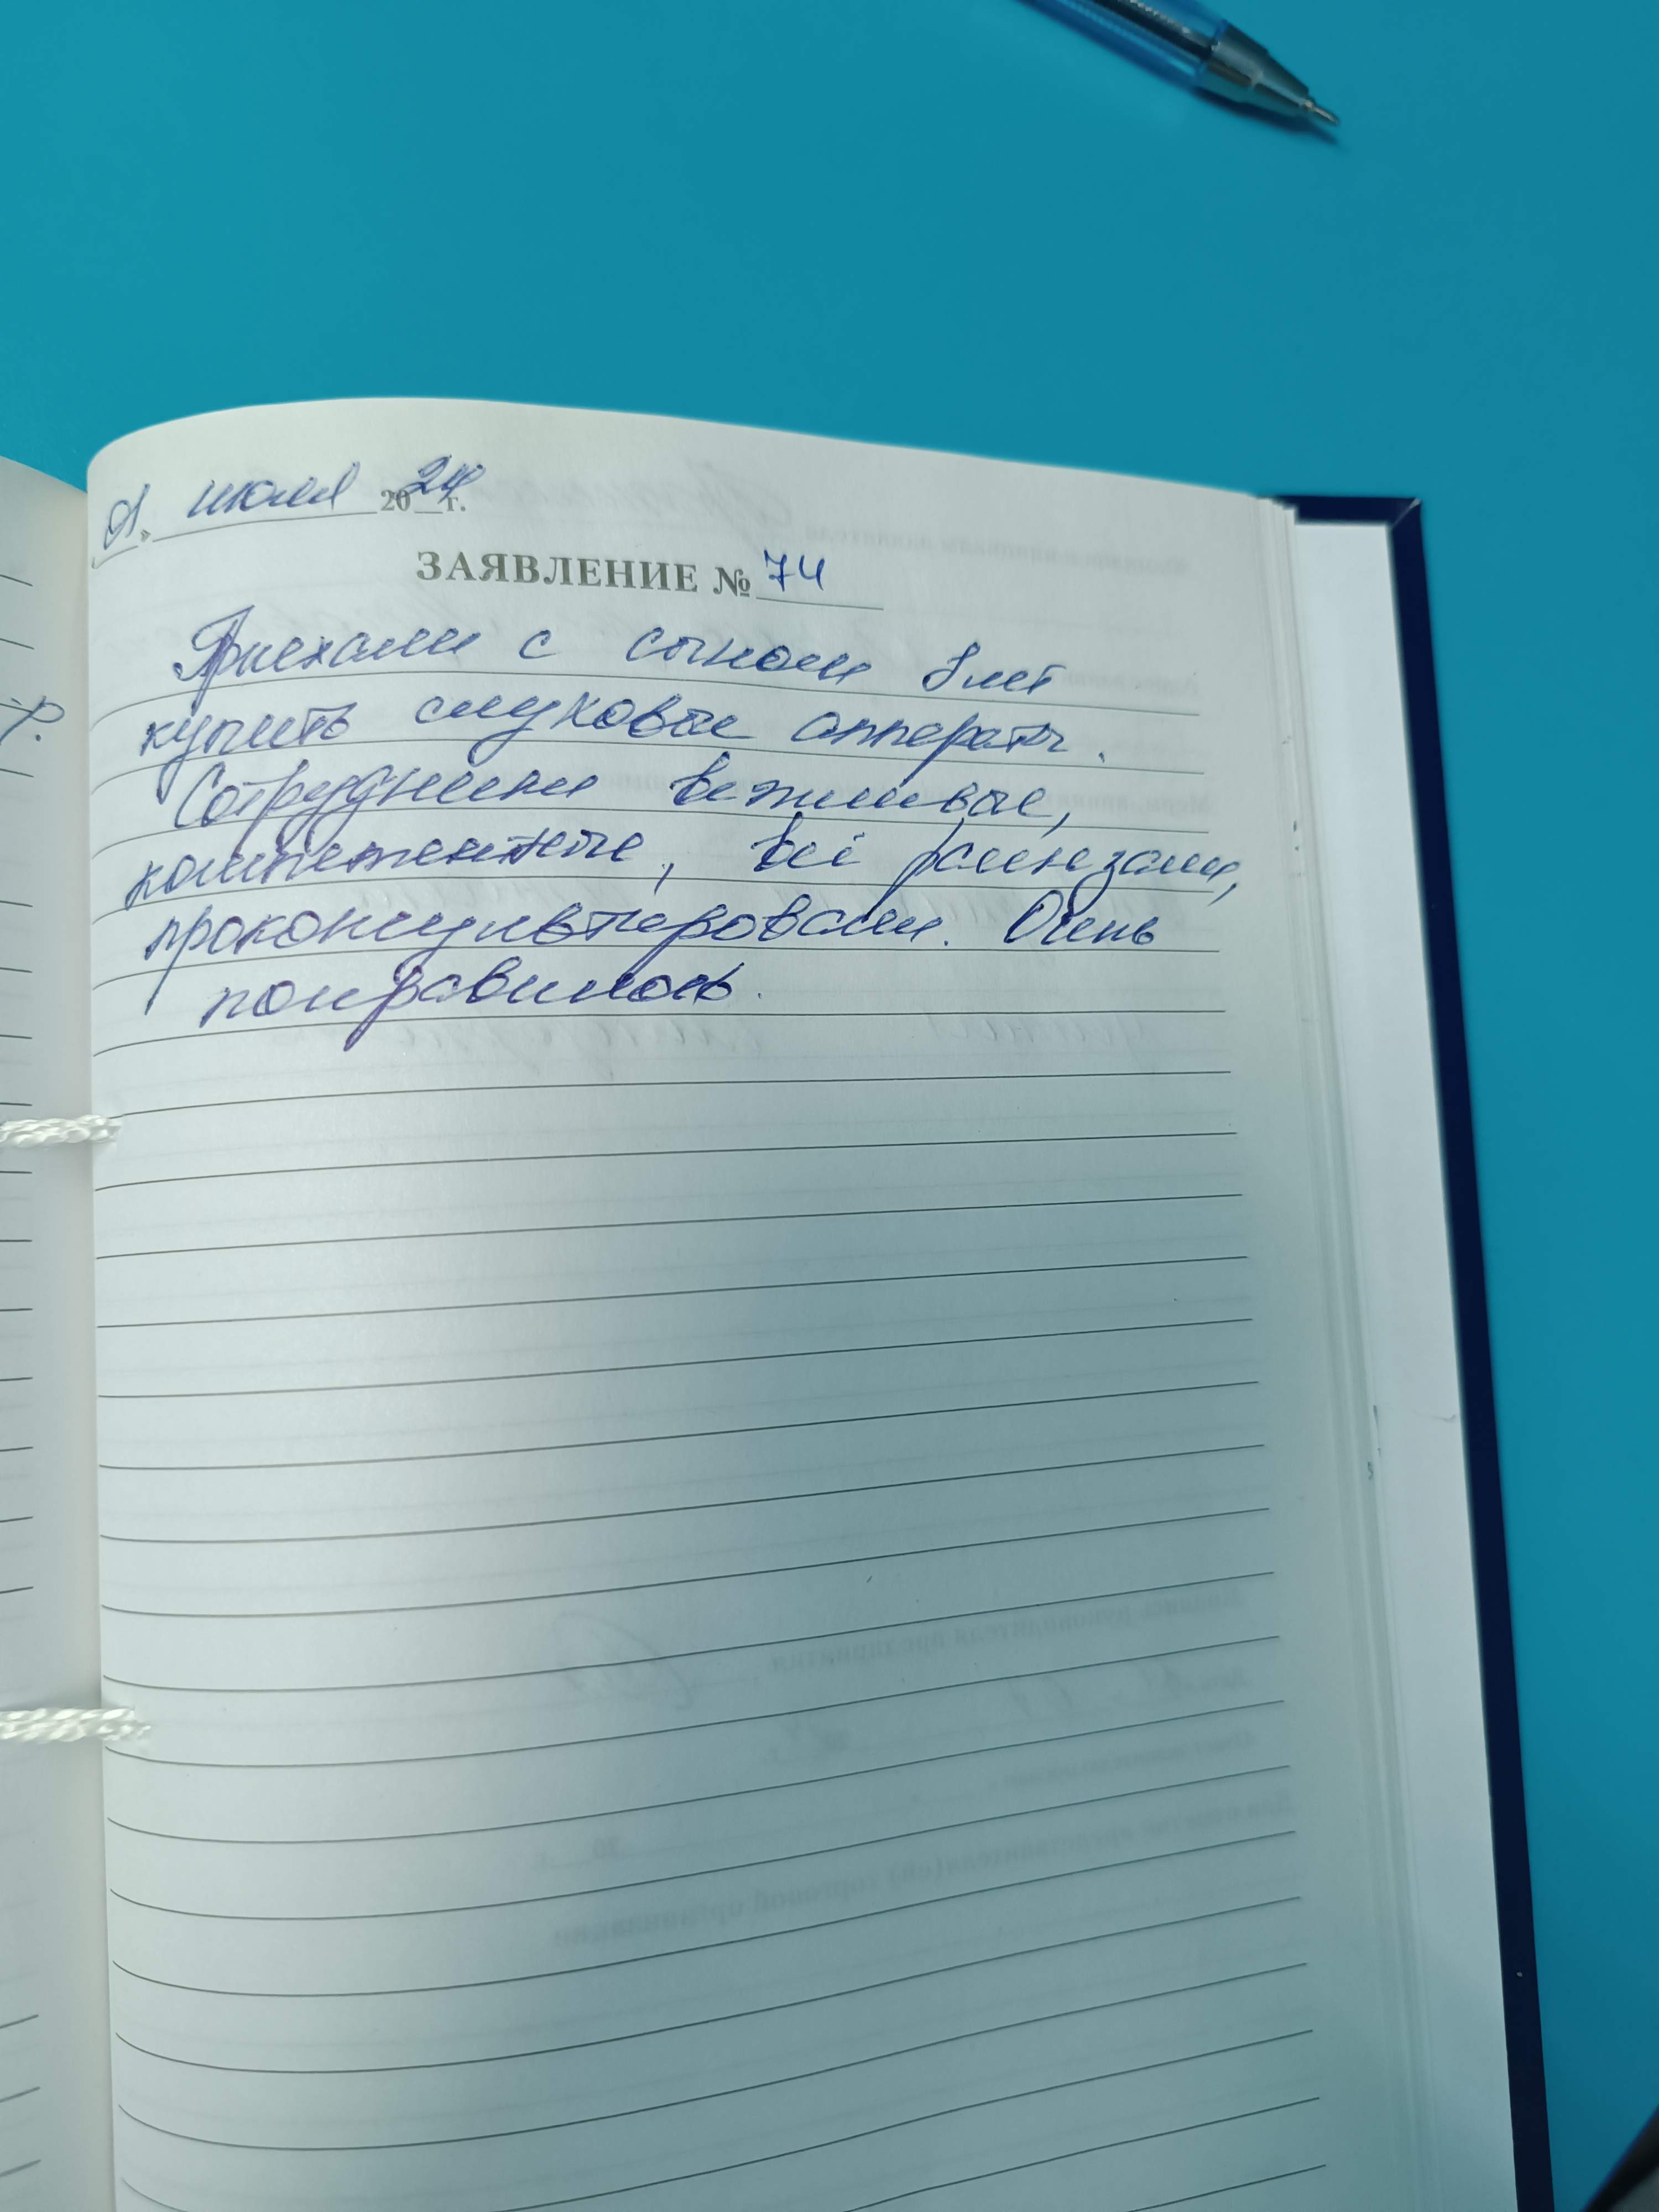 01 » июля 2024 г.
ЗАЯВЛЕНИЕ № 74
Приехали с сыном 8 лет
купить слуховые аппараты.
Сотрудники вежливые,
компетентные, всё рассказали,
проконсультировали. Очень
понравилось.